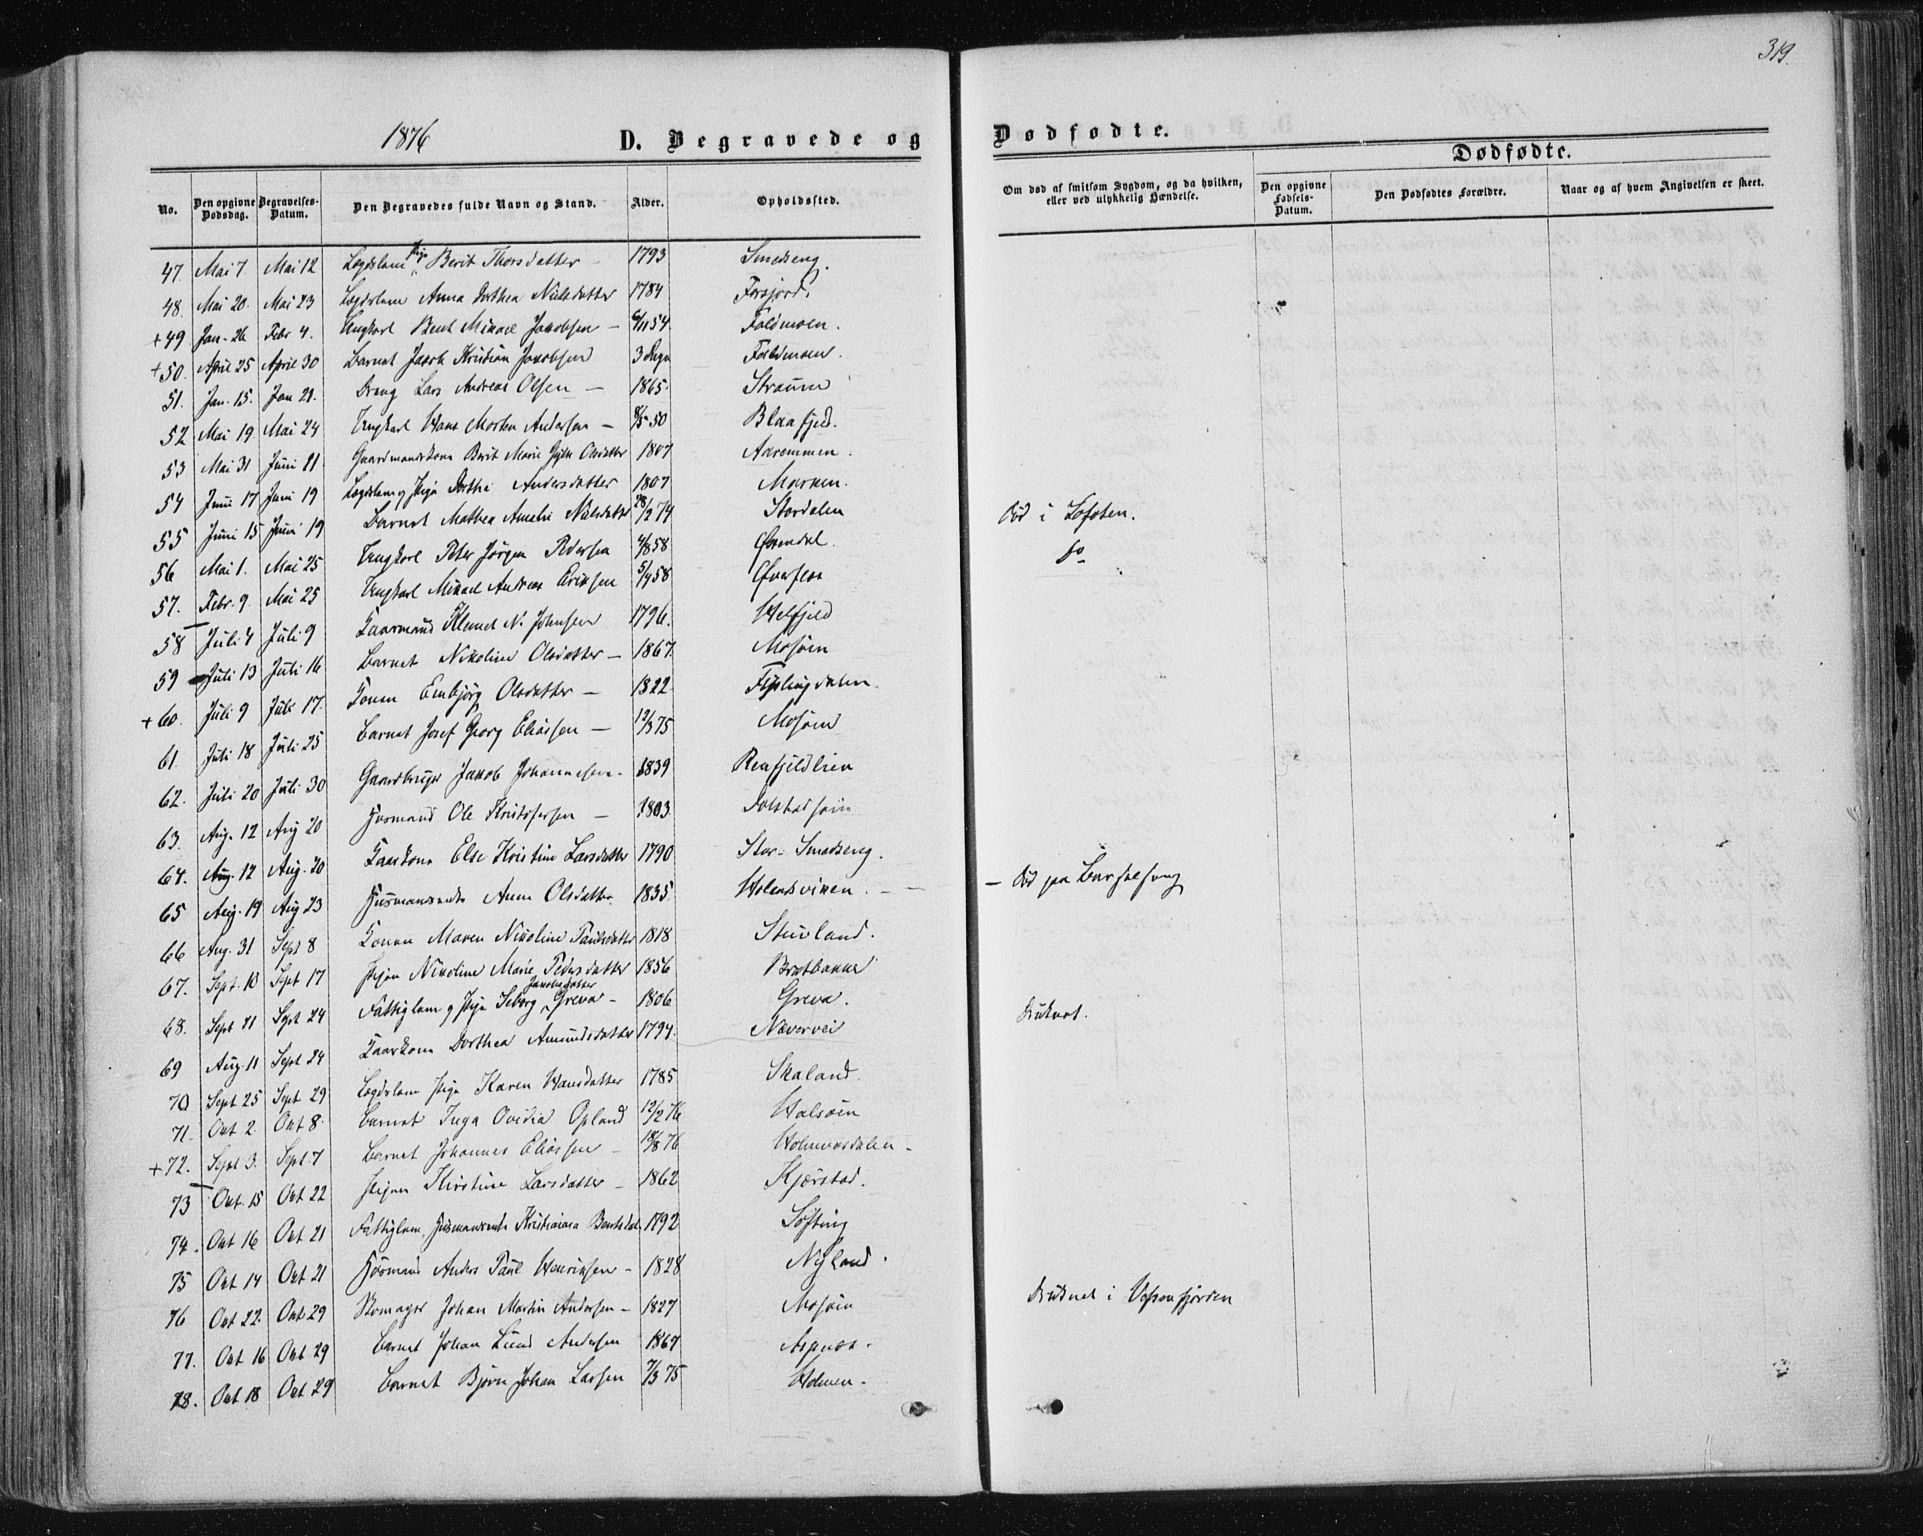 319.
1876
D. Begravede og Dødfødte.
Dødfødte.
No.
Den opgivne Dødsdag.
Begravelses-Datum.
Den Begravedes fulde Navn og Stand.
Alder.
Opholdssted.
Om død af smitsom Sygdom, og da hvilken, eller ved ulykkelig Hændelse.
Den opgivne Fødsels-Datum.
Den Dødfødtes Forældre.
Naar og af hvem Angivelsen er skeet.
47. Mai 7 Mai 12 Lægdslem Pige Berit Thorsdatter 1793 Smedseng.
48. Mai 20. Mai 23 Lægdslem Anna Dorthea Nielsdatter 1784 Forsjord.
+49 Jan. 26 Febr 4. Ungkarl Bent Mikael Jakobsen — 6/11 54. Foldmoen.
+50. April 25 April 30 Barnet Jakob Kristian Jakobsen 3 Dage Foldmoen.
51. Jan. 15. Jan 21. Dreng Lars Andreas Olsen — 1865. Straum
52 Mai 19 Mai 24 Ungkarl Hans Morten Andersen — 8/5 50 Blaafjeld.
53 Mai 31 Juni 11 Gaardmandskone Berit Marie Olsdatter 1807
54 Juni 17 Juni 19 Lægdslem og Pige Dorthe Andersdatter 1807 Marken.
55 Juni 15 Juni 19 Barnet Mathea Amalie Nielsdatter 28/2 74 Stordalen
56 Mai 1. Mai 25 Ungkarl Peter Jørgen Pedersen 4/8 58 død i Lofoten.
57. Febr. 9. Mai 25 Ungkarl Mikael Andreas Eriksen 5/4 58 do
58 Juli 4 Juli 9 Kaarmand Klemet N. Johnsen 1796. Helfjeld
59 Juli 13 Juli 16 Barnet Nikoline Olsdatter — 1867. Mosøen
+60. Juli 9 Juli 17. Konen Embjørg Olsdatter — 1822. Fiplingdalen.
61. Juli 18 Juli 25 Barnet Josef Georg Eliassen — 12/3 75 Mosøen
62. Juli 20 Juli 30 Gaardbruger Jakob Johannesen 1839 Renfjeldlien
63. Aug. 12 Aug 20 Husmand Ole Kristofersen — 1803.
64. Aug. 12 Aug. 20 Kaarkone Else Kristine Larsdatter 1790 Stor-Smedseng.
65 Aug. 19 Aug 23 Husmandsenke Anne Olsdatter. 1835. Holandsviken. — — død paa Barselseng
66 Aug. 31 Sept 8 Konen Maren Nikoline Paulsdatter 1818 Stuvland.
67. Sept. 10 Sept 17 Pigen Nikoline Marie Pedersdatter 1856 Bratbakke
68. Sept 21 Sept 24 Fattiglem og Pige Seborg Jakobsdatter Greva — 1806 Greva. druknet.
69 Aug. 11 Sept 24 Kaarkone Dorthea Amundsdatter 1794. Nævervei
70 Sept 25 Sept 29 Lægdslem Pige Karen Hansdatter 1785 Skaland.
71. Okt 2. Okt 8. Barnet Inga Ovidia Opland 12/2 76 Halsøen
+72. Sept 3. Sept 7 Barnet Johannes Eliassen 18/8 76 Holmvasdalen.
73 Okt. 15 Okt 22 Pigen Kristine Larsdatter — 1862 Kjærstad.
74. Okt 16 Okt 21 Fattiglem, Husmandsenke Kristianna Bentsdat 1792 Søfting
75 Okt 14 Okt 21 Husmand Anders Paul Henriksen — 1828 Nyland.
76 Okt 22. Okt 29 Skomager Johan Martin Andersen — 1827 Mosøen druknet i Vefsenfjorden
77. Okt 16 Okt 29 Barnet Johan Lund Andersen 1867 Aspnes.
78. Okt 18 Okt 29 Barnet Bjørn Johan Larsen 7/3 75 Holmen.